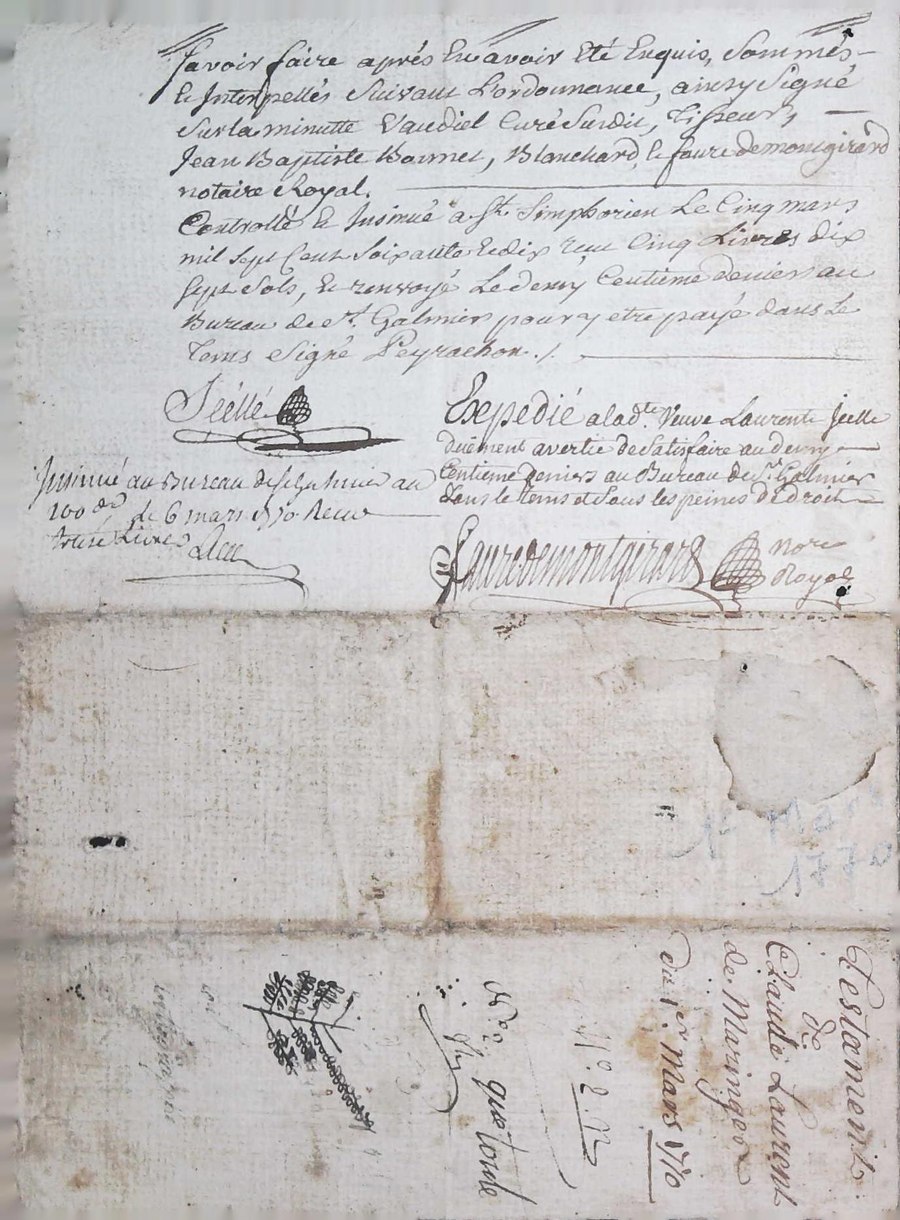 Savoir faire aprés En avoir Eté Enquis, Sommés
Et Interpellés Suivant L'ordonnance, ainsy Signé
Sur la minutte Vaudiel Curé Susdit, Tisseur,
Jean Baptiste Bonnet, Blanchard, et faure de montgirard
notaire Royal.
Controllé et Insinué a St. Simphorien Le Cinq mars
mil Sept Cent Soixante et dix reçu Cinq Livres dix
Sept Sols, Et renvoyé Le demy Centieme denier au
Bureau de St. Galmier pour y etre payé dans Le
Tems Signé Peyrachon./.
Scéllé
Expedié a lad.te Veuve Laurent
duëment avertie de Satisfaire au demy
Centieme denier au Bureau de St. Galmier
dans le tems et Sous les peines de droit
Insinué au Bureau de St Galmier au
100 de le 6 mars 1770 Recu
Livres
Faure de montgirard Nore
Royal
1er Mars
1770
Testament
de
Claude Laurent
de Maringes
du 1er Mars 1770
N.º 2.